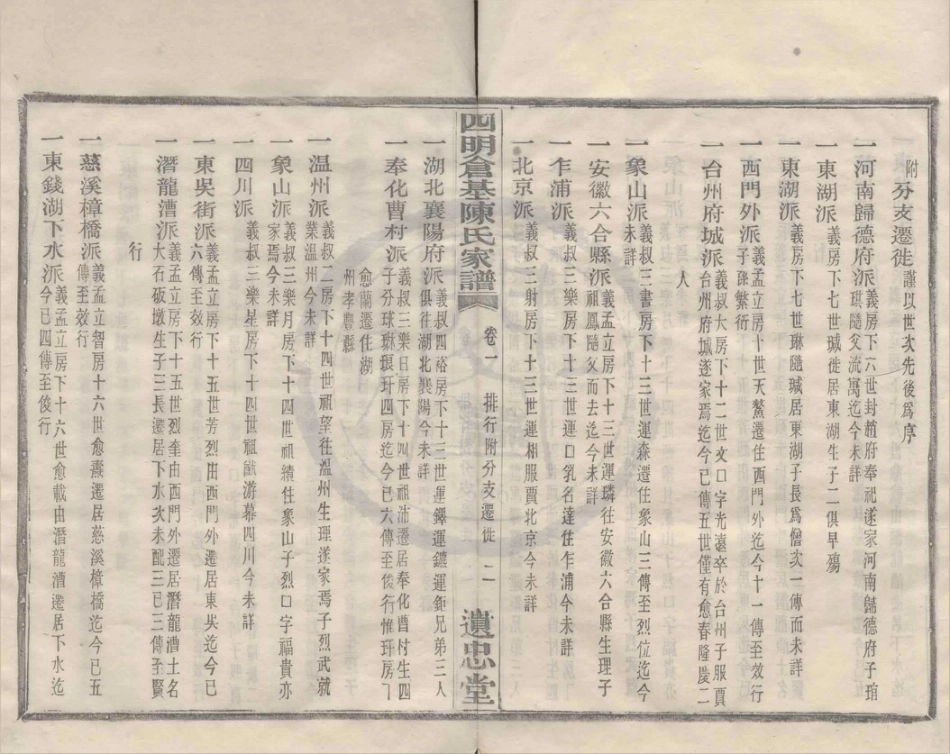 附分支遷徙 謹以世次先後爲序
一河南歸德府派 義房下六世封趙府奉祀遂家河南歸德府子琯
琪隨父流寓迄今未詳
一東湖派 義房下七世瑊徙居東湖生子二俱早殤
一東湖派 義房下七世琳隨瑊居東湖子長爲僧次一傳而未詳
一西門外派 義孟立房十世天鰲遷住西門外迄今十一傳至效行
子孫繁衍
一台州府城派 義叔大房下十二世文口字光遠卒於台州子服賈
台州府城遂家焉迄今已傳五世僅有愈春隆慶二
人
一象山派 義叔三書房下十三世運森遷住象山三傳至烈位迄今
未詳
一安徽六合縣派 義孟立房下十三世運璘往安徽六合縣生理子
祖鳳隨父而去迄今未詳
一乍浦派 義叔三樂房下十三世運口乳名達住乍浦今未詳
一北京派 義叔三射房下十三世運相服賈北京今未詳
四明倉基陳氏家譜 卷一 排行附分支遷徙 二 遺忠堂
一湖北襄陽府派 義叔四裕房下十三世運鐸運鑣運鉅兄弟三人
俱往湖北襄陽今未詳
一奉化曹村派 義叔三樂日房下十四世祖浦遷居奉化曹村生四
子分球琳琅玕四房迄今已六傳至後行惟玕房下
愈蘭遷住湖
州孝豐縣
一溫州派 義叔二房下十四世祖望往溫州生理遂家焉子烈武就
業溫州今未詳
一象山派 義叔三樂月房下十四世祖績住象山子烈口字福貴亦
家焉今未詳
一四川派 義叔三樂星房下十四世祖猷游幕四川今未詳
一東吳街派 義孟立房下十五世芳烈由西門外遷居東吳迄今已
六傳至效行
一潛龍漕派 義孟立房下十五世烈奎由西門外遷居潛龍漕土名
大石碶墩生子三長遷居下水次未配三已三傳至賢
行
一慈溪樟橋派 義孟立智房十六世愈燾遷居慈溪樟橋迄今已五
傳至效行
一東錢湖下水派 義孟立房下十六世愈載由潛龍漕遷居下水迄
今已四傳至後行